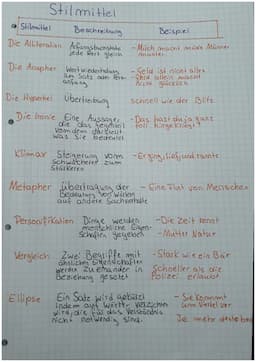 Stilmittel
Stilmittel Beschreibung Beispiel
Die Alliteration Anfangsbuchstabe - Milch macht müde Männer
jedes Wort gleich munter
Die Anapher Wortwiederholung - Geld ist nicht alles
am Satz oder Vers- Geld allein macht
anfang nicht glücklich
Die Hyperbel Übertreibung schnell wie der Blitz
Die Ironie Eine Aussage, - Das hast du ja ganz
die das Gegenteil toll hingekriegt
von dem darstellt
was sie bedeutet
Klimax Steigerung vom - Er ging, lief und rannte
Schwächeren zum
Stärkeren
Metapher Übertragung der - Eine Flut von Menschen
Bedeutung von Wörtern
auf andere Sachverhalte
Personifikation Dinge werden - Die Zeit rennt
menschliche Eigen- - Mutter Natur
schaften gegeben
Vergleich Zwei Begriffe mit - Stark wie ein Bär
ähnlichen Eigenschaften - Schneller als die
werden zueinander in Polizei erlaubt
Beziehung gesetzt
Ellipse Ein Satz wird gekürzt
indem auf Wörter verzichtet
wird, die für das Verständnis Je mehr desto
nicht notwendig sind.